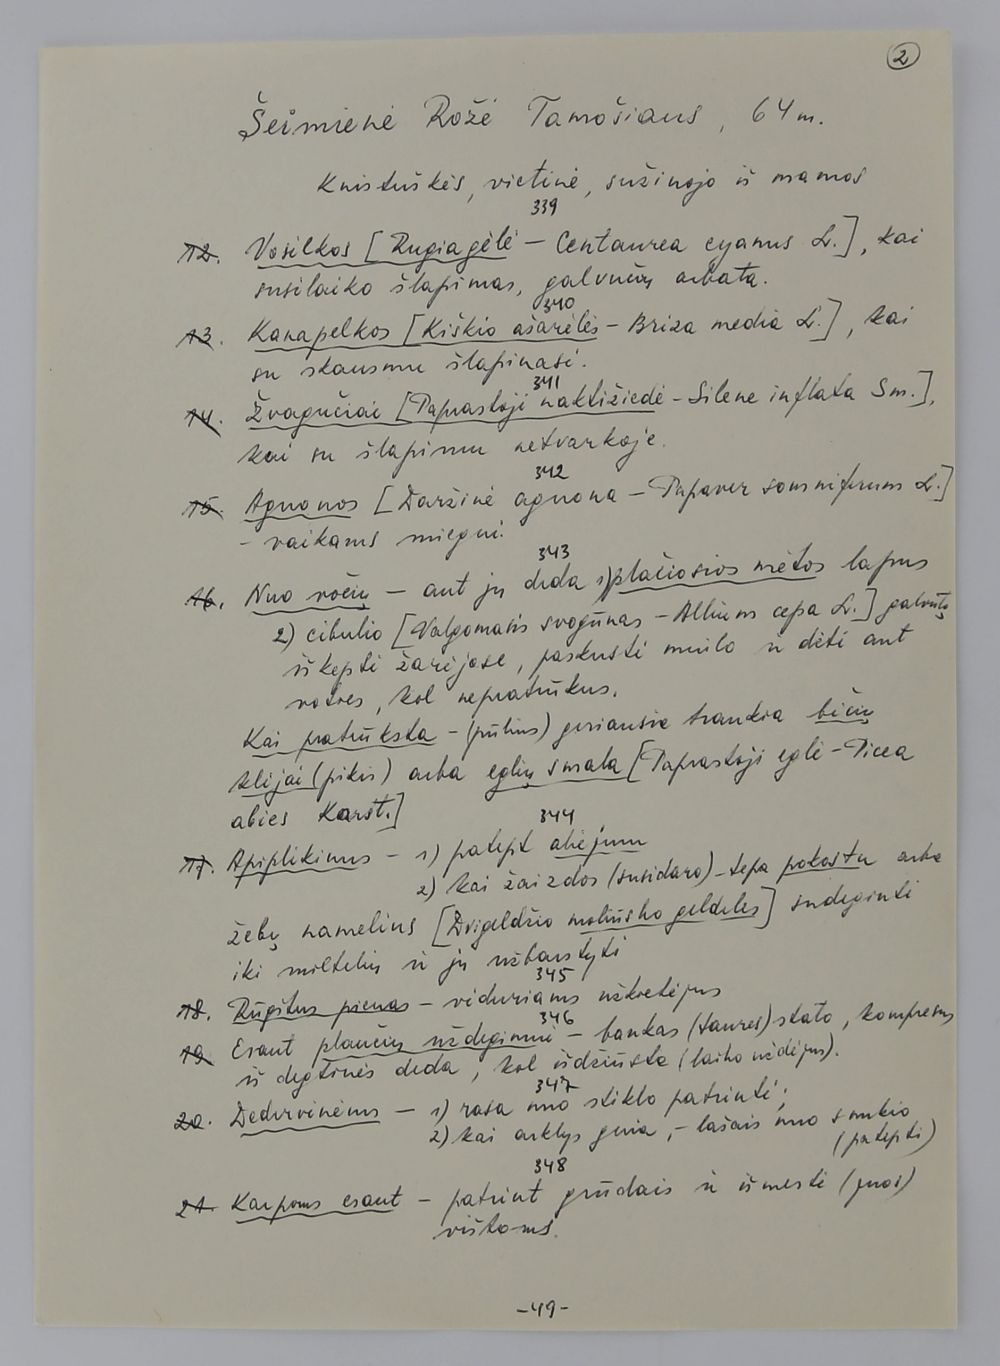 2
Šeimienė Rožė Tamošiaus, 64 m.
Knistuškės, vietinė, sužinojo iš mamos
339
12. Vosilkos [Rugiagėlė – Centaurea cyanus L.], kai
susilaiko šlapimas, galvučių arbata.
340
13. Kanapelkos [Kiškio ašarėlės – Briza media L.], kai
su skausmu šlapinasi.
341
14. Žvagučiai [Paprastoji naktižiedė – Silene inflata Sm.],
kai su šlapimu netvarkoje.
342
15. Aguonos [Daržinė aguona – Papaver somniferum L.]
– vaikams miegui.
343
16. Nuo vočių – ant jų deda 1) plačiosios mėtos lapus
2) cibulio [Valgomasis svogūnas – Allium cepa L.] galvutę
iškepti žarijose, paskusti muilo ir dėti ant
voties, kol nepratrūkus.
Kai pratrūksta – (pūlius) geriausia traukia bičių
klijai (pikis) arba eglių smala [Paprastoji eglė – Picea
abies Karst.]
344
17. Apiplikimus – 1) patept aliejum
2) kai žaizdos (susidaro) – tepa pokostu arba
žebų namelius [Dvigeldžio moliusko geldelės] sudeginti
iki miltelių ir jų užbarstyti
345
18. Rūgštus pienas – viduriams užkietėjus
346
19. Esant plaučių uždegimui – bankas (taures) stato, kompresus
iš degtinės deda, kol išdžiūsta (laiko uždėjus).
347
20. Dedervinėms – 1) rasa nuo stiklo patrinti;
2) kai arklys geria, – lašais nuo snukio
(patepti)
348
21. Karpoms esant – patrint grūdais ir išmesti (juos)
vištoms.
–49–